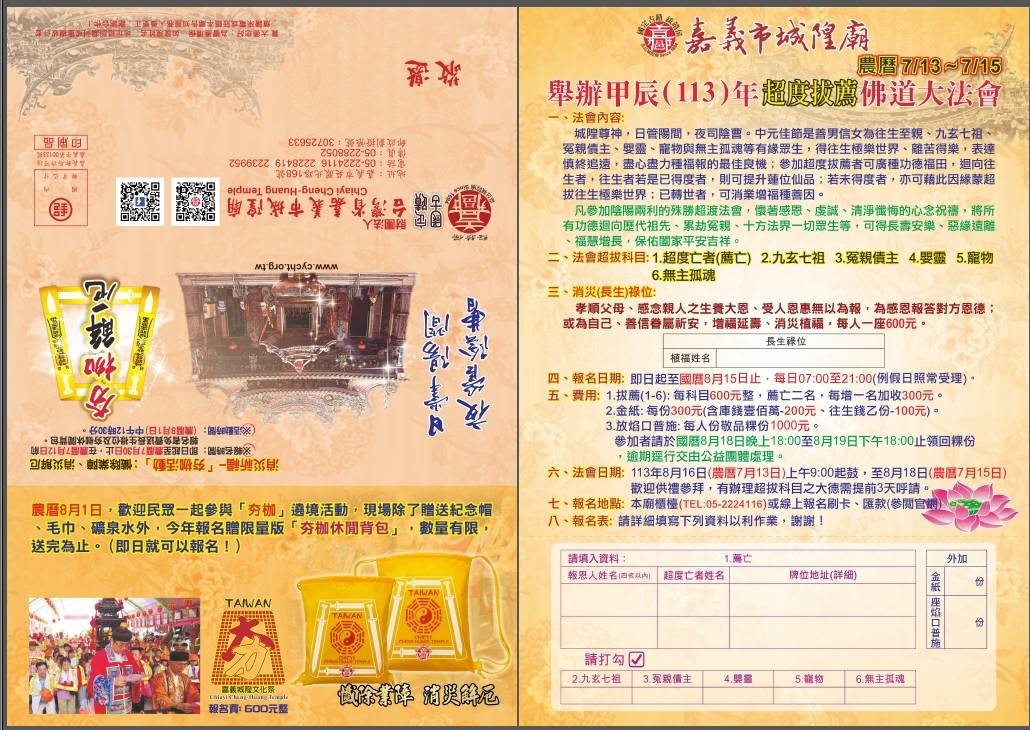 貴大德您好，為響應環保，如後如姓名、地址錯誤或重複收到寄件
煩請來電或親臨本廟告知服務人員更正，謝謝合作！
敬邀
印刷品
財團法人
台灣省嘉義市城隍廟
Chiayi Cheng-Huang Temple
國定古蹟
地址：嘉義市吳鳳北路168號
電話：05-2224116 2228419 2239952
傳真：05-2280952
郵政劃撥：30725633
www.cycht.org.tw
日掌陽間
夜管陰曹
夯枷
消災祈福-「夯枷活動」：懺除業障、消災解厄
(※報名時間：即日起至國曆7月30日止，在農曆7月12日前
報名者免費送長生祿位及夯枷休閒背包。
(※活動時間：(農曆8月1日)中午12時30分。
農曆8月1日，歡迎民眾一起參與「夯枷」遶境活動，現場除了贈送紀念帽
、毛巾、礦泉水外，今年報名贈限量版「夯枷休閒背包」，數量有限，
送完為止。（即日就可以報名！）
TAIWAN
大夯
嘉義城隍文化祭
Chiayi Cheng-Huang Temple
報名費: 600元整
TAIWAN
CHIAYI
CHENG HUANG TEMPLE
TAIWAN
CHIAYI
CHENG HUANG TEMPLE
懺除業障 消災解厄
嘉義市城隍廟
農曆 7/13～7/15
舉辦甲辰(113)年超度拔薦佛道大法會
一、法會內容:
城隍尊神，日管陽間，夜司陰曹。中元佳節是善男信女為往生至親、九玄七祖、
冤親債主、嬰靈、寵物與無主孤魂等有緣眾生，得往生極樂世界、離苦得樂，表達
慎終追遠，盡心盡力種福報的最佳良機；參加超度拔薦者可廣種功德福田，迴向往
生者，往生者若是已得度者，則可提升蓮位仙品；若未得度者，亦可藉此因緣蒙超
拔往生極樂世界；已轉世者，可消業增福種善因。
凡參加陰陽兩利的殊勝超渡法會，懷著感恩、虔誠、清淨懺悔的心念祝禱，將所
有功德迴向歷代祖先、累劫冤親、十方法界一切眾生等，可得長壽安樂、惡緣遠離
、福慧增長，保佑闔家平安吉祥。
二、法會超拔科目: 1.超度亡者(薦亡) 2.九玄七祖 3.冤親債主 4.嬰靈 5.寵物
6.無主孤魂
三、消災(長生)祿位:
孝順父母、感念親人之生養大恩、受人恩惠無以為報，為感恩報答對方恩德；
或為自己、善信眷屬祈安，增福延壽、消災植福，每人一座600元。
長生祿位
植福姓名
四、報名日期: 即日起至國曆8月15日止．每日07:00至21:00(例假日照常受理)。
五、費用: 1.拔薦(1-6): 每科目600元整，薦亡二名，每增一名加收300元。
2.金紙: 每份300元(含庫錢壹佰萬-200元、往生錢乙份-100元)。
3.放焰口普施: 每人份敬品粿份1000元。
參加者請於國曆8月18日晚上18:00至8月19日下午18:00止領回粿份
，逾期逕行交由公益團體處理。
六、法會日期: 113年8月16日(農曆7月13日)上午9:00起鼓，至8月18日(農曆7月15日)
歡迎供禮參拜，有辦理超拔科目之大德需提前3天呼請。
七、報名地點: 本廟櫃檯(TEL:05-2224116)或線上報名刷卡、匯款(參閱官網)
八、報名表: 請詳細填寫下列資料以利作業，謝謝！
請填入資料： 1.薦亡
報恩人姓名(四名以內) 超度亡者姓名 牌位地址(詳細)
外加
金紙 份
座焰口普施 份
請打勾
2.九玄七祖 3.冤親債主 4.嬰靈 5.寵物 6.無主孤魂